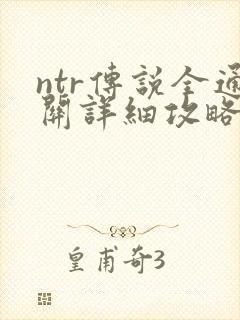 ntr傳説全通
關詳細攻略
皇甫奇3